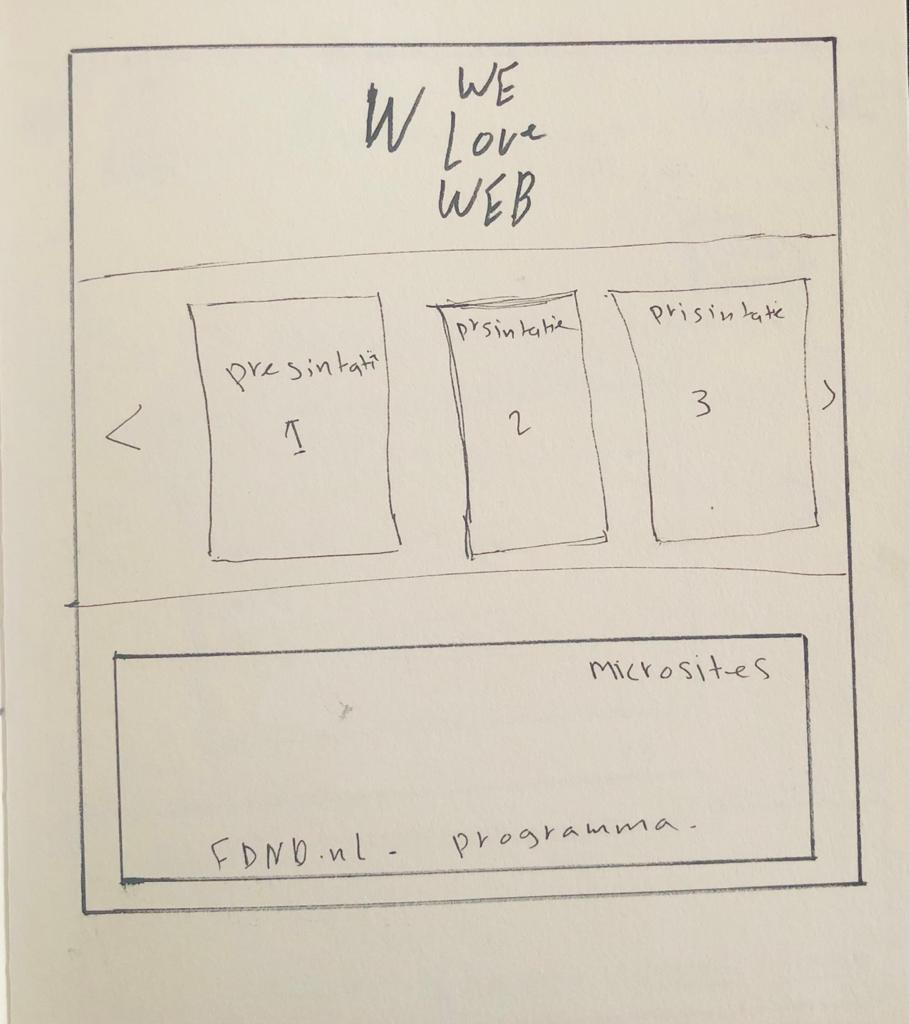 W WE
Love
WEB
< presintatie
1
prsintatie
2
prisintatie
3 >
microsites
FDND.nl - programma.